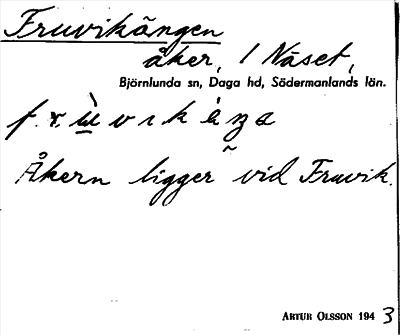 Fruvikängen
åker, 1 Näset,
Björnlunda sn, Daga hd, Södermanlands län.
Åkern ligger vid Fruvik.
ARTUR OLSSON 1943